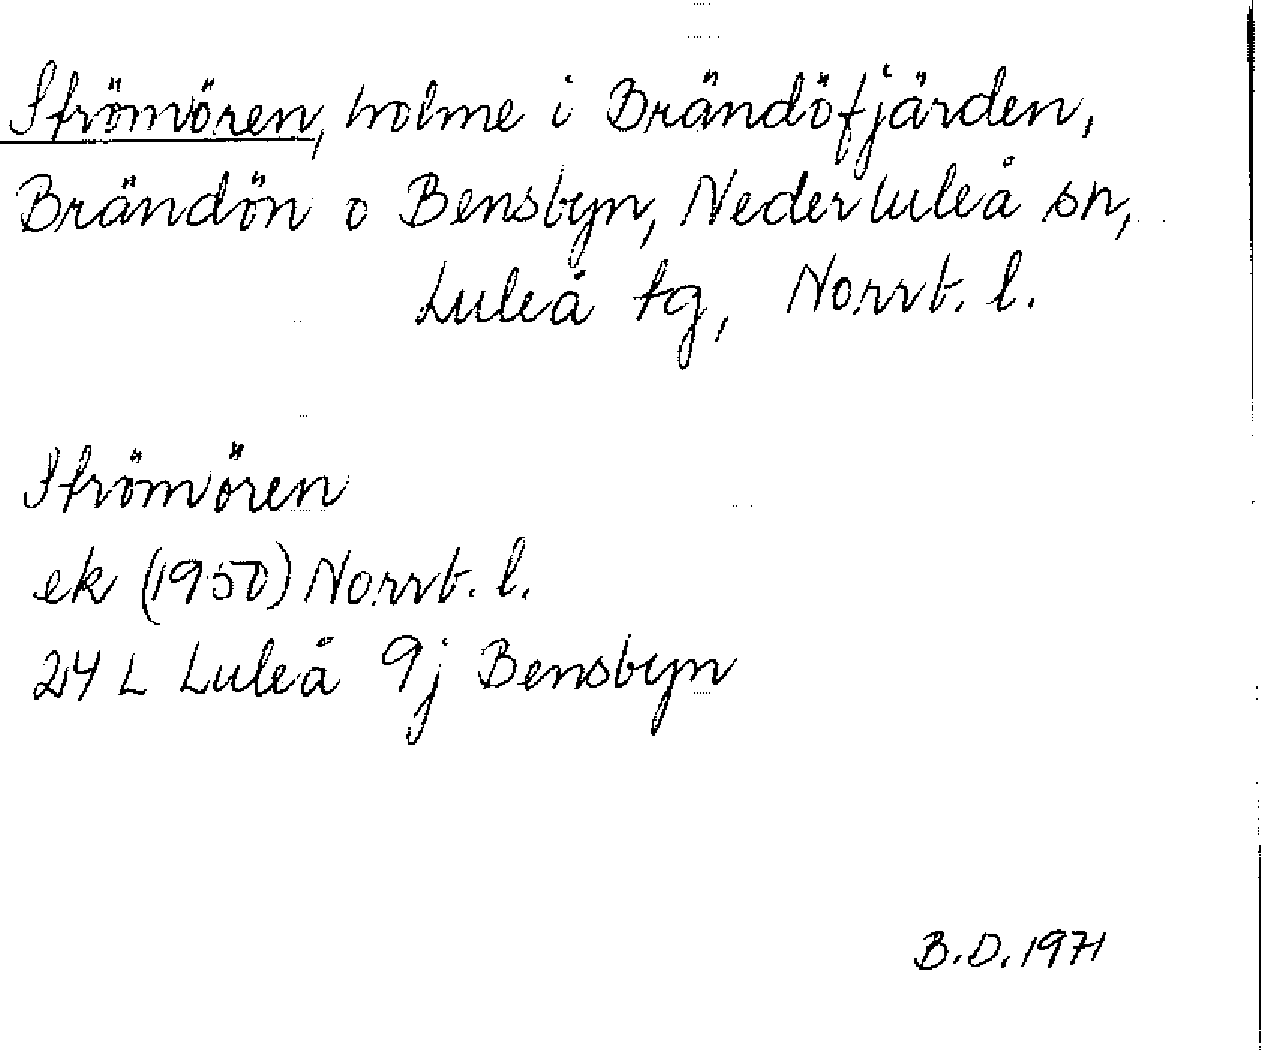 Strömören, holme i Brändöfjärden,
Brändön o Bensbyn, Nederluleå sn,
Luleå tg, Norrb. l.
Strömören
ek (1950) Norrb. l.
24 L Luleå 9j Bensbyn
B.D. 1971